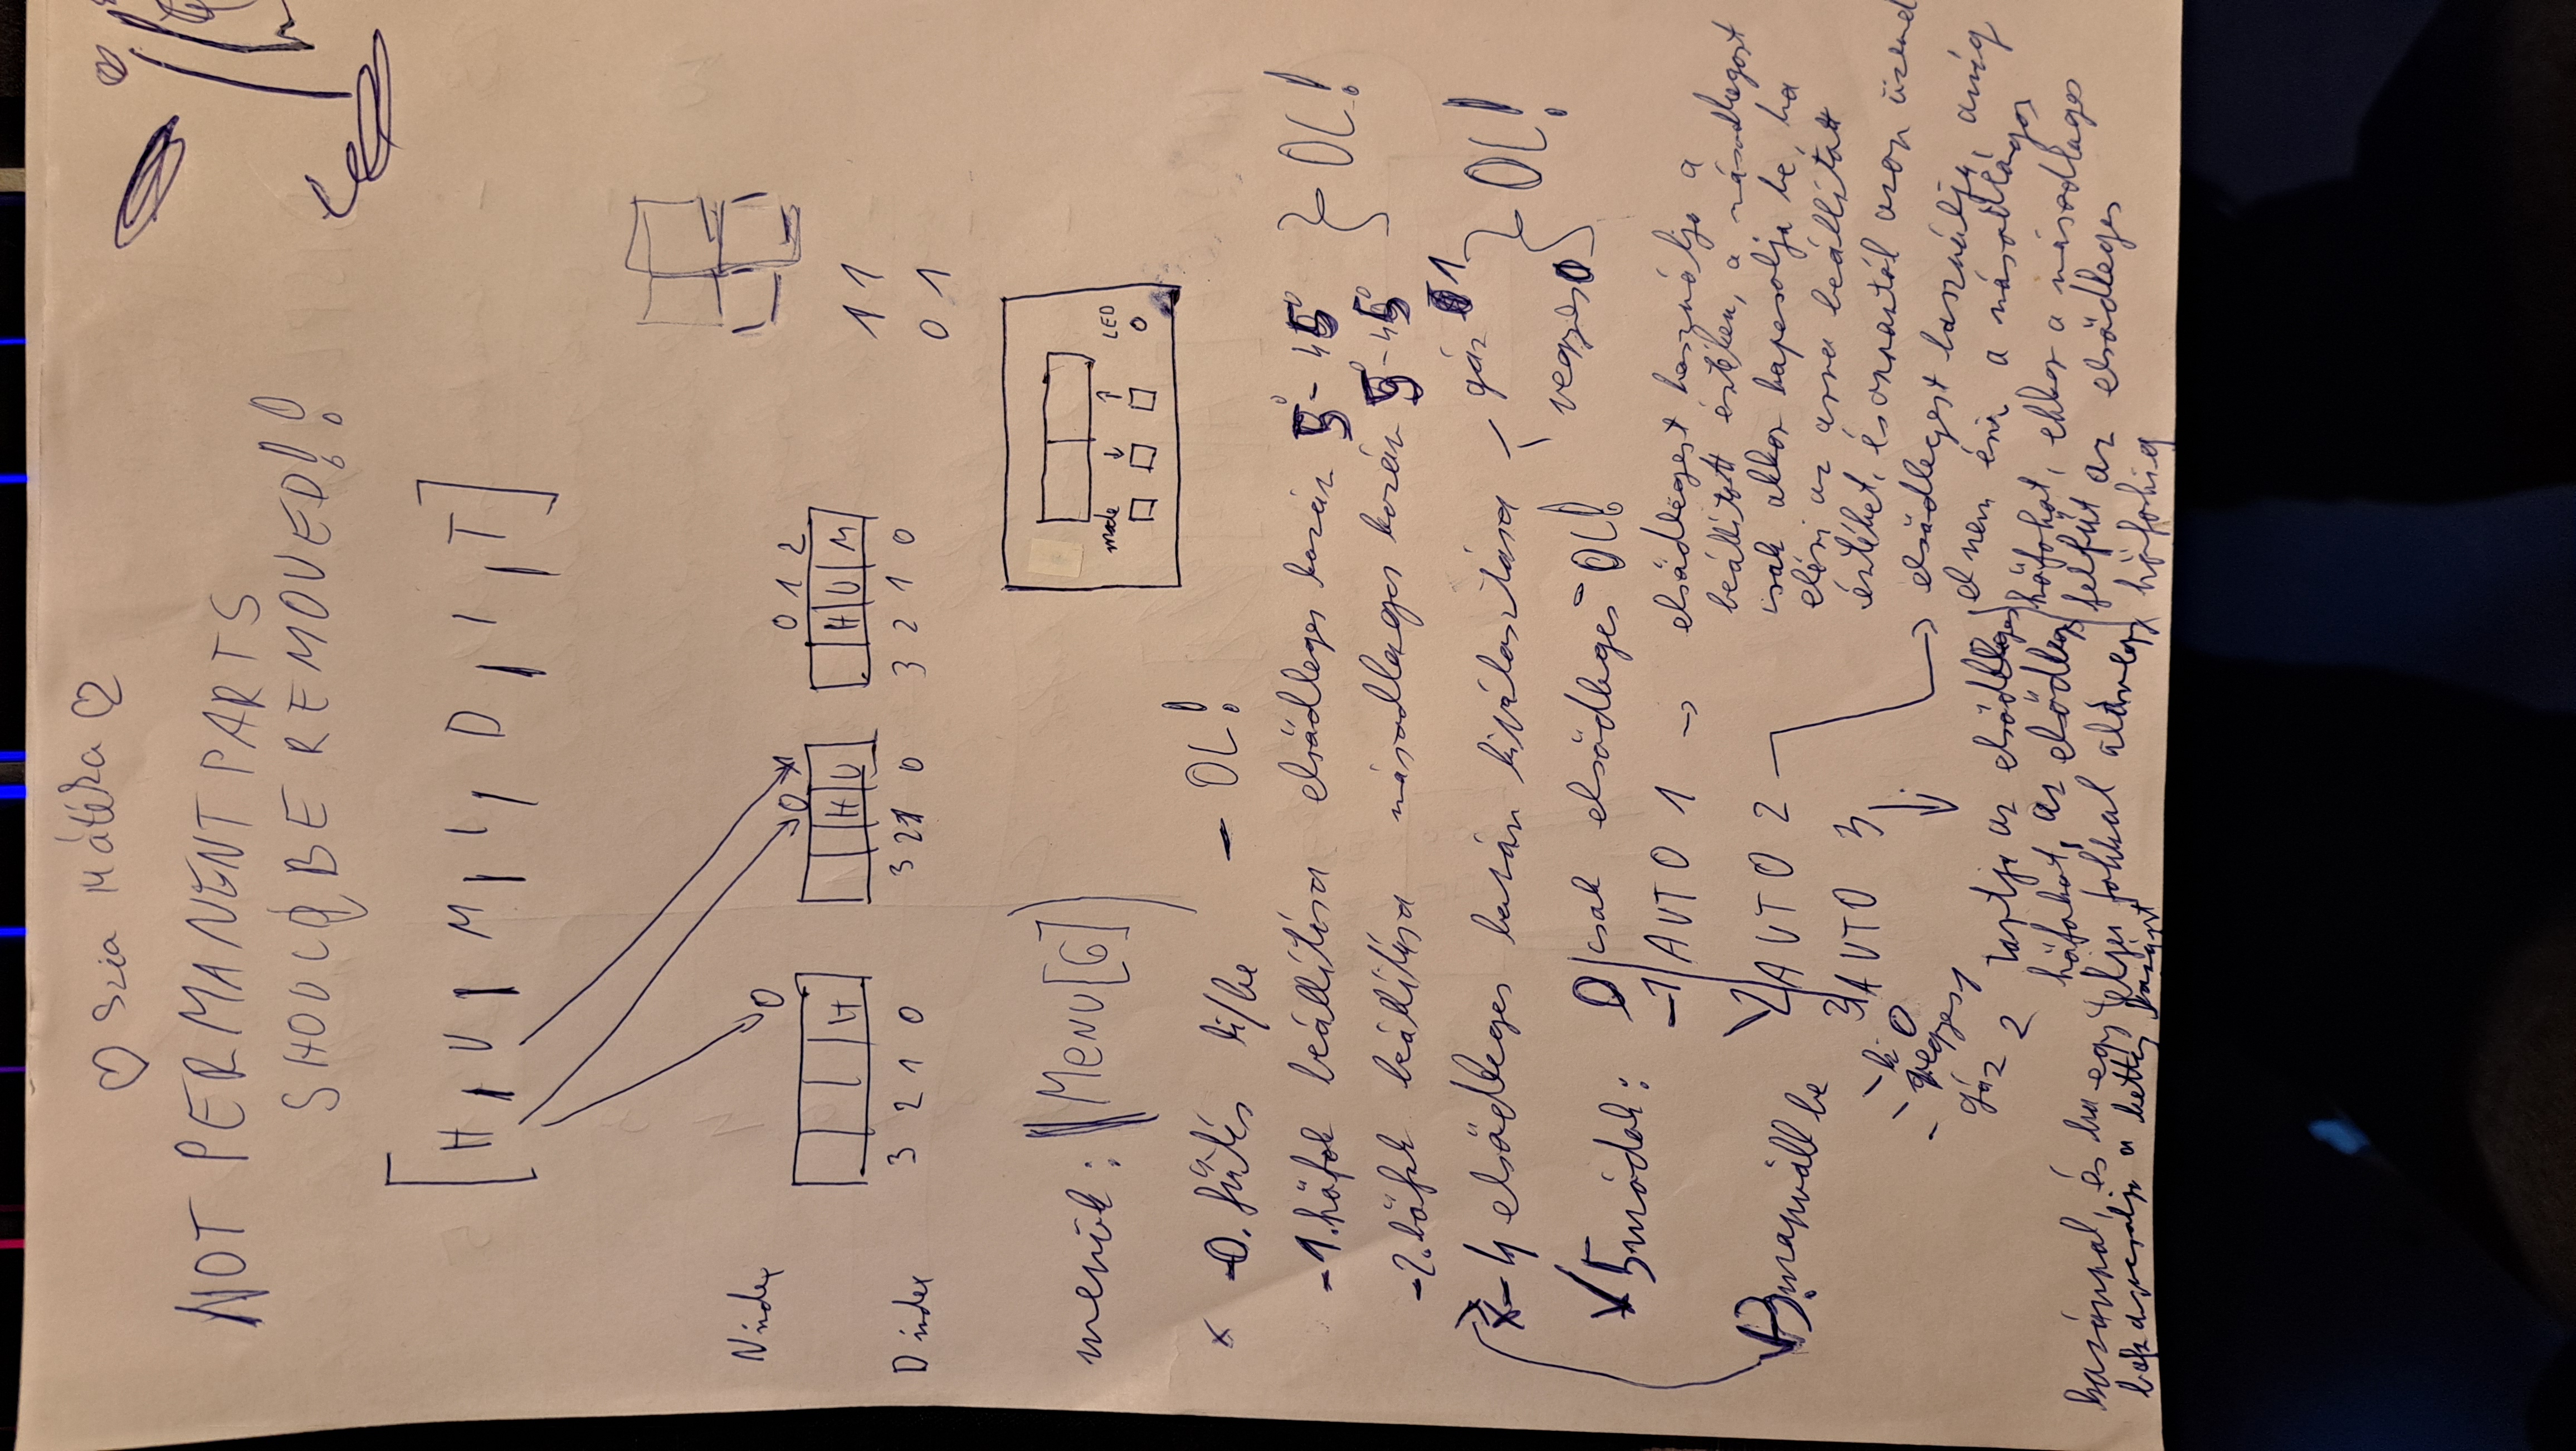 ♡ Szia Mátéka ♡
NOT PERMANENT PARTS
SHOULD BE REMOVED!!
[H, U, M, L, D, I, T]
0 0 1 0 1 2
Nindex
H H U H U M
Dindex 3 2 1 0 3 2 1 0 3 2 1 0
1 1
0 1
mode ↓ ↑ LED
menük: Menu[6]
x - 0. fűtés ki/be - OL!
- 1. hőfok beállítása elsődleges kazán 5-45
- 2. hőfok beállítása másodlagos kazán 5-45
} OL!
4 elsődleges kazán kiválasztása
gáz 1
vegyes 0
} OL!
5 módok:
0 csak elsődleges - OL!
1 AUTO 1 → elsődlegest használja a
beállított értéken, a másodlagost
csak akkor kapcsolja be, ha
eléri az arra beállított
értéket, és onnantól azon üzemel
2 AUTO 2 → elsődlegest használja amíg
el nem éri a másodlagos
hőfokát, ekkor a másodlagos
felfűt az elsődleges
hőfokig
3 AUTO 3 ↓
tartja az elsődleges
hőfokát, az elsődleges
kazánnal, és ha egy teljes fokkal alámegy
bekapcsolja a kettes kazánt
3. manuál be
- ki 0
- vegyes 1
- gáz 2